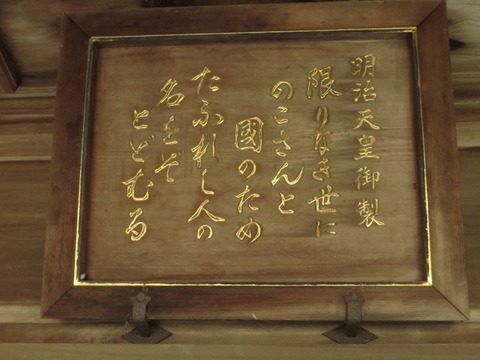 明治天皇御製
限りなき世に
のこさんと
國のため
たふれし人の
名をぞ
とどむる